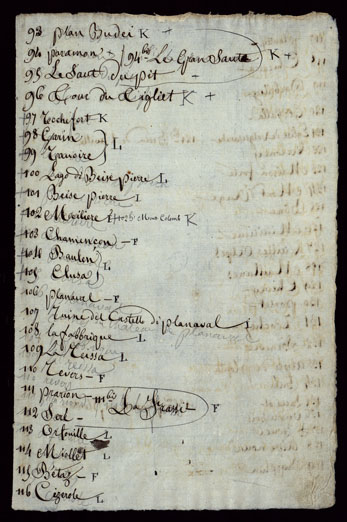 93 plan Budei K +
94 paramon + / 94 bis Le Gran Saut K +
95 Le Saut du Pit +
96 Tour du Tigliet K +
97 Rochefort K
98 Garin
99 Ravoire } L
100 Lago di Beise pierre L
101 Beise pierre L
102 Moriliere K
103 Chamençon - F
104 Baulen
105 Clusa } L
106 planaval - F
107 Ruine del Castello di planaval L
108 la fabbrique L
109 La Tassa L
110 Revers - F
111 prarion - 111 bis La Grassi F
112 Sert -
113 Orfouille L
114 Miollet L
115 Betaz - F
116 Cezerole L